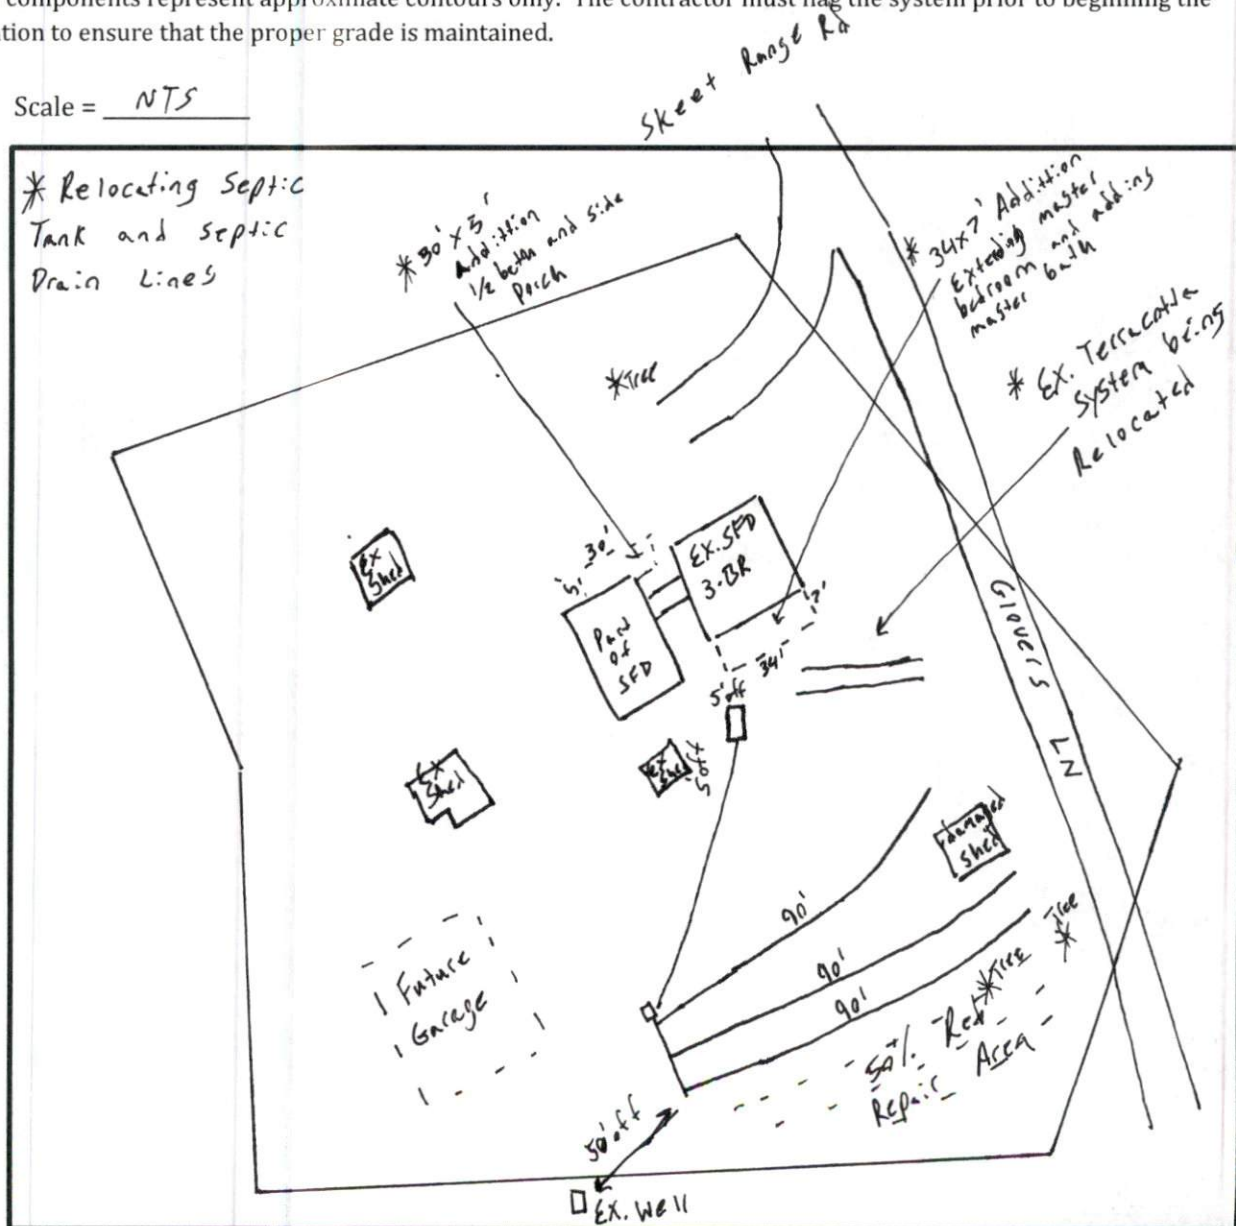 components represent approximate contours only. The contractor must flag the system prior to beginning the
tion to ensure that the proper grade is maintained.
Scale = NTS
Skeet Range Rd
* Relocating Septic
Tank and Septic
Drain Lines
* 30' x 5'
addittion
1/2 bath and side
porch
* 34x7' Addittion
Extending master
bedroom and adding
master bath
* Ex. Terracotta
System being
Relocated
*Tree
Ex
Shed
5'
30'
Ex. SFD
3-BR
Part
of
SFD
7'
34'
5' off
Glovers LN
Ex
Shed
Ex
Shed
5' off
damaged
shed
90'
90'
90'
Tree
*
*Tree
Future
Garage
50% Red
Repair Area
50' off
Ex. Well